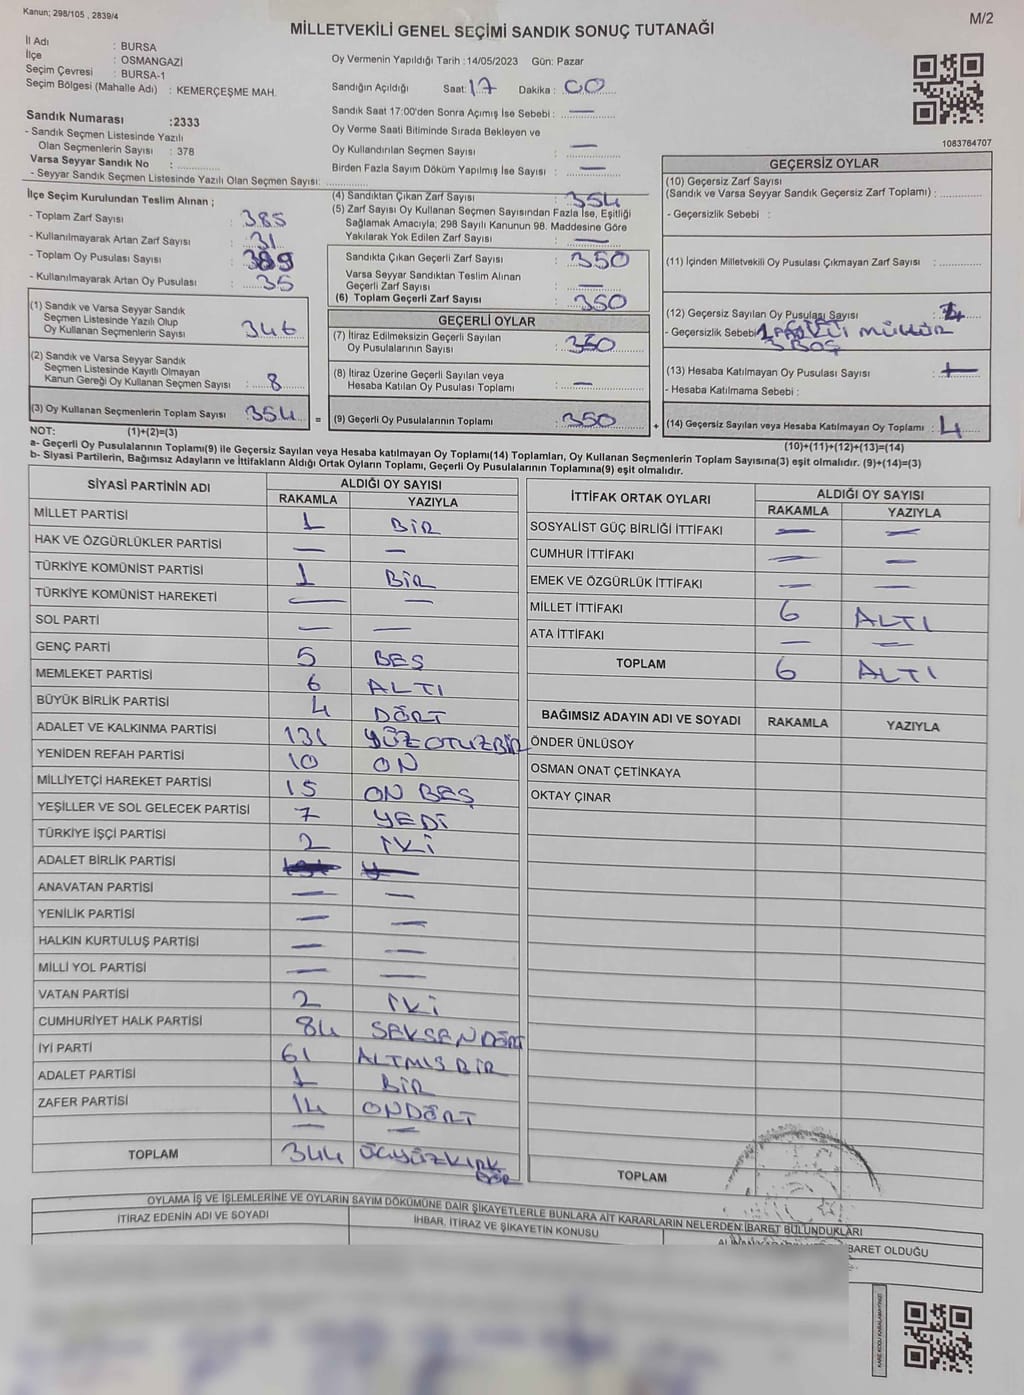 Kanun; 298/105 , 2839/4
M/2
MİLLETVEKİLİ GENEL SEÇİMİ SANDIK SONUÇ TUTANAĞI
İl Adı : BURSA
İlçe : OSMANGAZİ
Seçim Çevresi : BURSA-1
Seçim Bölgesi (Mahalle Adı) : KEMERÇEŞME MAH.
Oy Vermenin Yapıldığı Tarih :14/05/2023 Gün: Pazar
Sandığın Açıldığı Saat: 17 Dakika : 00
Sandık Saat 17:00'den Sonra Açımış İse Sebebi : —
Oy Verme Saati Bitiminde Sırada Bekleyen ve
Oy Kullandırılan Seçmen Sayısı : —
Birden Fazla Sayım Döküm Yapılmış İse Sayısı : —
1083764707
Sandık Numarası :2333
- Sandık Seçmen Listesinde Yazılı
Olan Seçmenlerin Sayısı : 378
Varsa Seyyar Sandık No :
- Seyyar Sandık Seçmen Listesinde Yazılı Olan Seçmen Sayısı:
İlçe Seçim Kurulundan Teslim Alınan ;
- Toplam Zarf Sayısı : 385
- Kullanılmayarak Artan Zarf Sayısı : 31
- Toplam Oy Pusulası Sayısı : 389
- Kullanılmayarak Artan Oy Pusulası : 35
(1) Sandık ve Varsa Seyyar Sandık
Seçmen Listesinde Yazılı Olup
Oy Kullanan Seçmenlerin Sayısı : 346
(2) Sandık ve Varsa Seyyar Sandık
Seçmen Listesinde Kayıtlı Olmayan
Kanun Gereği Oy Kullanan Seçmen Sayısı : 8
(3) Oy Kullanan Seçmenlerin Toplam Sayısı : 354
(4) Sandıktan Çıkan Zarf Sayısı : 354
(5) Zarf Sayısı Oy Kullanan Seçmen Sayısından Fazla İse, Eşitliği
Sağlamak Amacıyla; 298 Sayılı Kanunun 98. Maddesine Göre
Yakılarak Yok Edilen Zarf Sayısı : —
Sandıkta Çıkan Geçerli Zarf Sayısı : 350
Varsa Seyyar Sandıktan Teslim Alınan
Geçerli Zarf Sayısı : —
(6) Toplam Geçerli Zarf Sayısı : 350
GEÇERLİ OYLAR
(7) İtiraz Edilmeksizin Geçerli Sayılan
Oy Pusulalarının Sayısı : 350
(8) İtiraz Üzerine Geçerli Sayılan veya
Hesaba Katılan Oy Pusulası Toplamı : —
= (9) Geçerli Oy Pusulalarının Toplamı : 350
GEÇERSİZ OYLAR
(10) Geçersiz Zarf Sayısı
(Sandık ve Varsa Seyyar Sandık Geçersiz Zarf Toplamı) :
- Geçersizlik Sebebi :
(11) İçinden Milletvekili Oy Pusulası Çıkmayan Zarf Sayısı :
(12) Geçersiz Sayılan Oy Pusulası Sayısı : 4
- Geçersizlik Sebebi MÜHÜR
3 BOŞ
(13) Hesaba Katılmayan Oy Pusulası Sayısı : —
- Hesaba Katılmama Sebebi :
+ (14) Geçersiz Sayılan veya Hesaba Katılmayan Oy Toplamı : 4
NOT: (1)+(2)=(3)
(10)+(11)+(12)+(13)=(14)
a- Geçerli Oy Pusulalarının Toplamı(9) ile Geçersiz Sayılan veya Hesaba katılmayan Oy Toplamı(14) Toplamları, Oy Kullanan Seçmenlerin Toplam Sayısına(3) eşit olmalıdır. (9)+(14)=(3)
b- Siyasi Partilerin, Bağımsız Adayların ve İttifakların Aldığı Ortak Oyların Toplamı, Geçerli Oy Pusulalarının Toplamına(9) eşit olmalıdır.
SİYASİ PARTİNİN ADI ALDIĞI OY SAYISI
RAKAMLA YAZIYLA
MİLLET PARTİSİ 1 BİR
HAK VE ÖZGÜRLÜKLER PARTİSİ — —
TÜRKİYE KOMÜNİST PARTİSİ 1 BİR
TÜRKİYE KOMÜNİST HAREKETİ — —
SOL PARTİ — —
GENÇ PARTİ 5 BEŞ
MEMLEKET PARTİSİ 6 ALTI
BÜYÜK BİRLİK PARTİSİ 4 DÖRT
ADALET VE KALKINMA PARTİSİ 131 YÜZOTUZBİR
YENİDEN REFAH PARTİSİ 10 ON
MİLLİYETÇİ HAREKET PARTİSİ 15 ON BEŞ
YEŞİLLER VE SOL GELECEK PARTİSİ 7 YEDİ
TÜRKİYE İŞÇİ PARTİSİ 2 İKİ
ADALET BİRLİK PARTİSİ
ANAVATAN PARTİSİ — —
YENİLİK PARTİSİ — —
HALKIN KURTULUŞ PARTİSİ — —
MİLLİ YOL PARTİSİ — —
VATAN PARTİSİ 2 İKİ
CUMHURİYET HALK PARTİSİ 84 SEKSENDÖRT
İYİ PARTİ 61 ALTMIŞBİR
ADALET PARTİSİ 1 BİR
ZAFER PARTİSİ 14 ONDÖRT
— —
TOPLAM 344 ÜÇYÜZKIRK
İTTİFAK ORTAK OYLARI ALDIĞI OY SAYISI
RAKAMLA YAZIYLA
SOSYALİST GÜÇ BİRLİĞİ İTTİFAKI — —
CUMHUR İTTİFAKI — —
EMEK VE ÖZGÜRLÜK İTTİFAKI — —
MİLLET İTTİFAKI 6 ALTI
ATA İTTİFAKI — —
TOPLAM 6 ALTI
BAĞIMSIZ ADAYIN ADI VE SOYADI RAKAMLA YAZIYLA
ÖNDER ÜNLÜSOY
OSMAN ONAT ÇETİNKAYA
OKTAY ÇINAR
TOPLAM
OYLAMA İŞ VE İŞLEMLERİNE VE OYLARIN SAYIM DÖKÜMÜNE DAİR ŞİKAYETLERLE BUNLARA AİT KARARLARIN NELERDEN İBARET BULUNDUKLARI
İTİRAZ EDENİN ADI VE SOYADI
İHBAR, İTİRAZ VE ŞİKAYETİN KONUSU
BARET OLDUĞU
KARE KODU KARALAMAYINIZ!